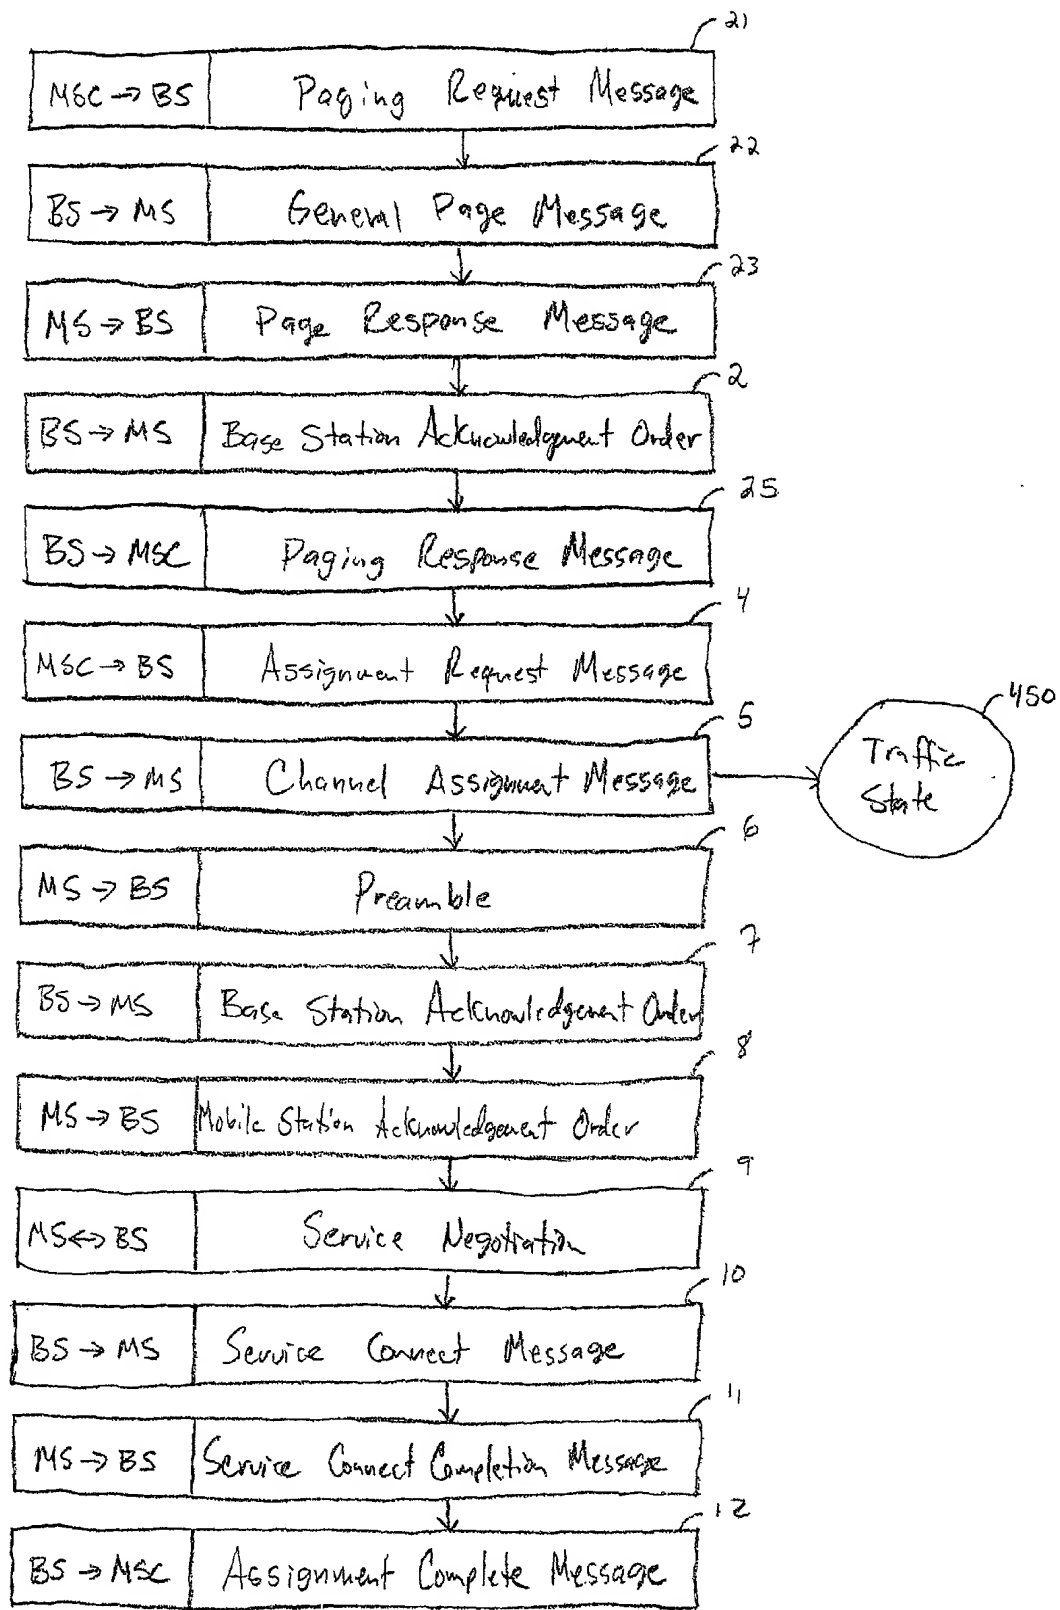 21
MSC → BS Paging Request Message
22
BS → MS General Page Message
23
MS → BS Page Response Message
2
BS → MS Base Station Acknowledgment Order
25
BS → MSC Paging Response Message
4
MSC → BS Assignment Request Message
5
BS → MS Channel Assignment Message
450
Traffic
State
6
MS → BS Preamble
7
BS → MS Base Station Acknowledgement Order
8
MS → BS Mobile Station Acknowledgement Order
9
MS ↔ BS Service Negotiation
10
BS → MS Service Connect Message
11
MS → BS Service Connect Completion Message
12
BS → MSC Assignment Complete Message